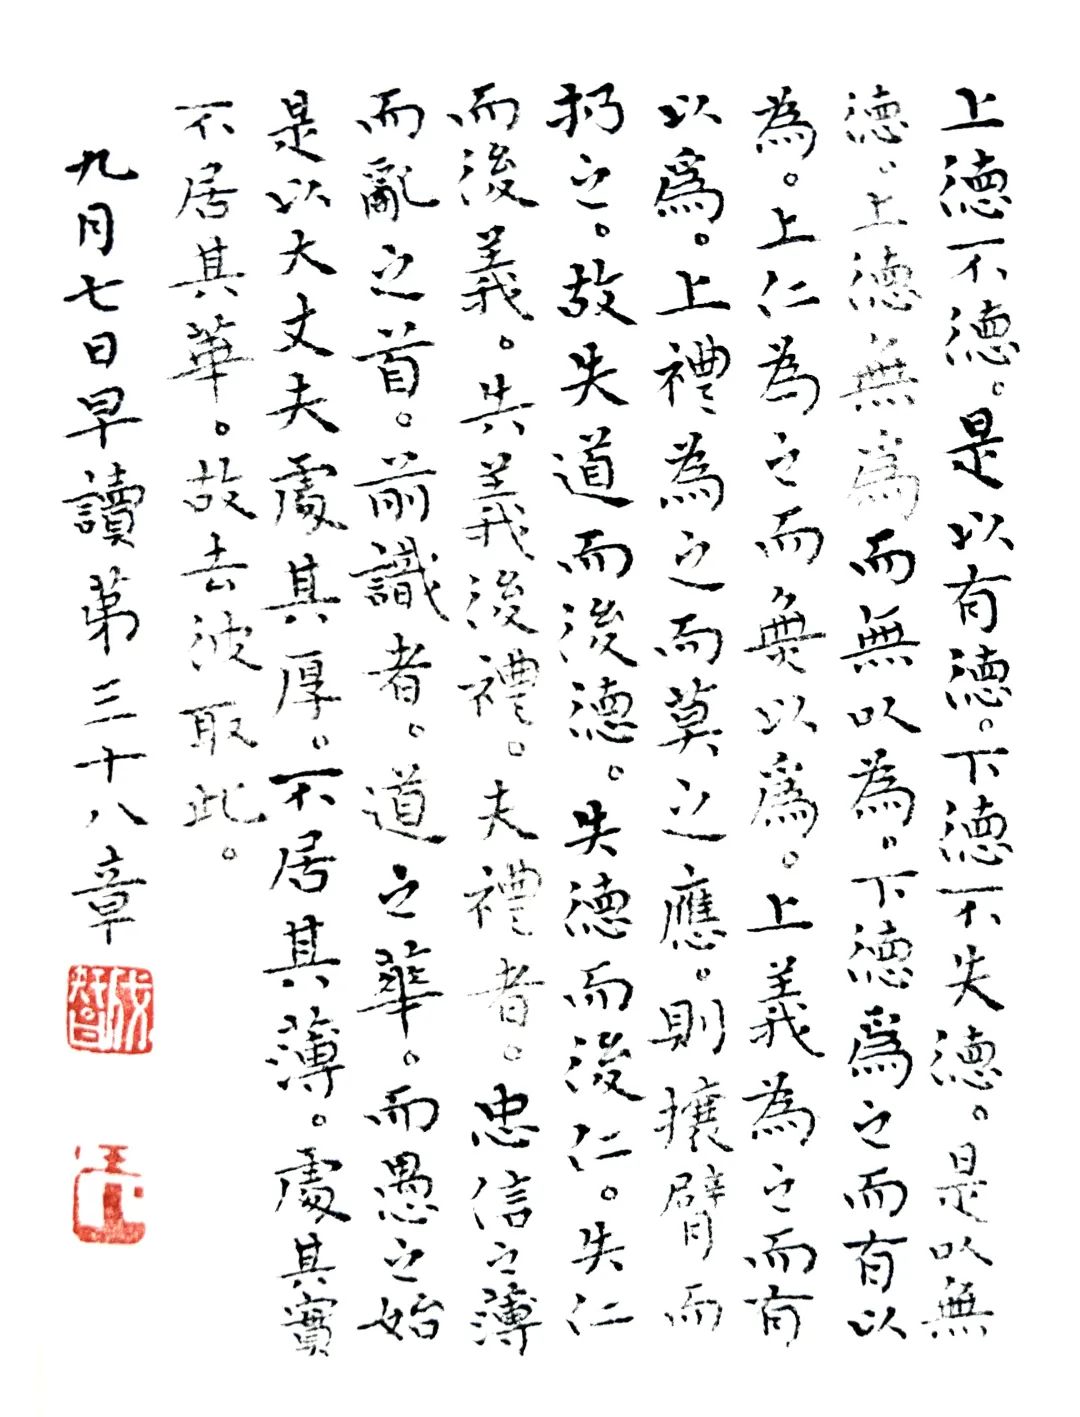 上德不德。是以有德。下德不失德。是以無
德。上德無為而無以為。下德為之而有以
為。上仁為之而無以為。上義為之而有
以為。上禮為之而莫之應。則攘臂而
扔之。故失道而後德。失德而後仁。失仁
而後義。失義後禮。夫禮者。忠信之薄
而亂之首。前識者。道之華。而愚之始
是以大丈夫處其厚。不居其薄。處其實
不居其華。故去彼取此。
九月七日早讀第三十八章